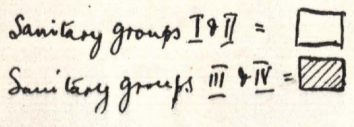 Sanitary groups I & II =
Sanitary groups III & IV =